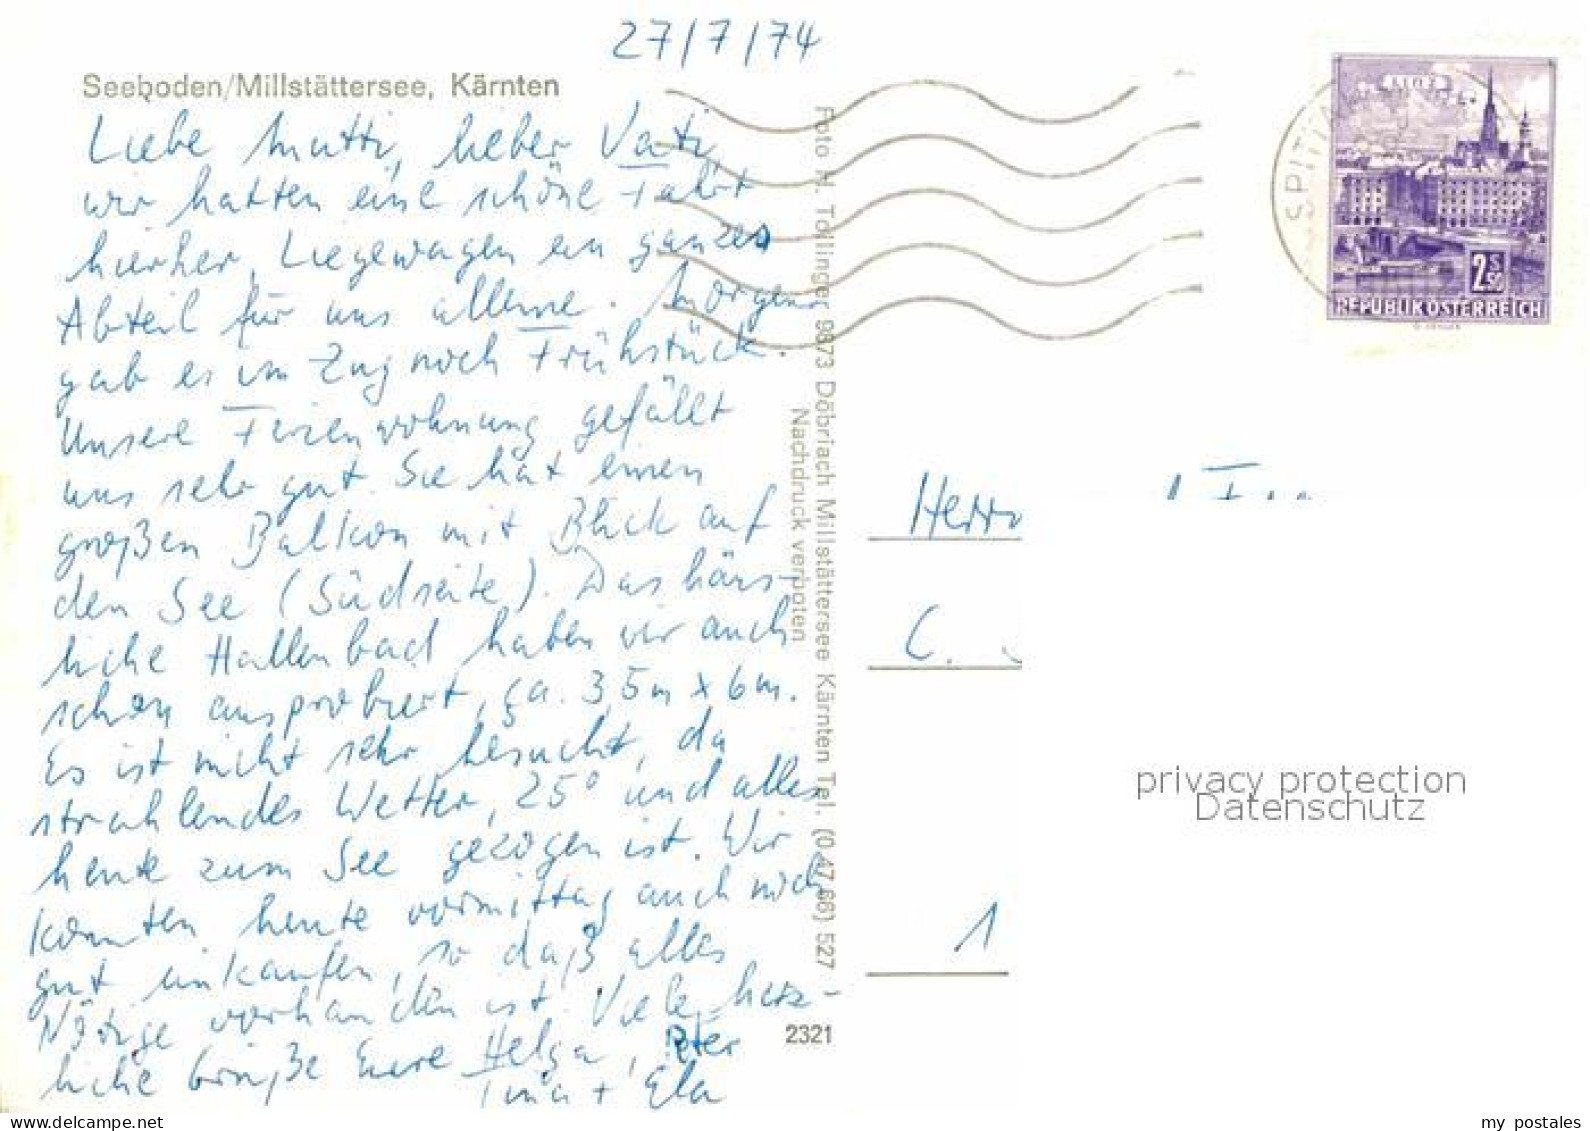 27/7/74
Seeboden/Millstättersee, Kärnten
Liebe Mutti, lieber Vati,
wir hatten eine schöne Fahrt
hierher, Liegewagen ein ganzes
Abteil für uns alleine. Morgens
gab es im Zug noch Frühstück.
Unsere Ferienwohnung gefällt
uns sehr gut. Sie hat einen
großen Balkon mit Blick auf
den See (Südseite). Das häus-
liche Hallenbad haben wir auch
schon ausprobiert, ca. 3,5m x 6m.
Es ist nicht sehr besucht, da
strahlendes Wetter, 25° und alles
heute zum See gezogen ist. Wir
konnten heute vormittag auch noch
gut einkaufen, so daß alles
Nötige vorhanden ist. Viele herz-
liche Grüße Eure Helga, Peter
Tina + Ela
Foto H. Tollinger 9873 Döbriach Millstättersee Kärnten Tel. (0 47 66) 527
Nachdruck verboten
2321
SPITTAL
LINZ
2 S 50
REPUBLIK ÖSTERREICH
Herrn
C.
1
privacy protection
Datenschutz
my postales